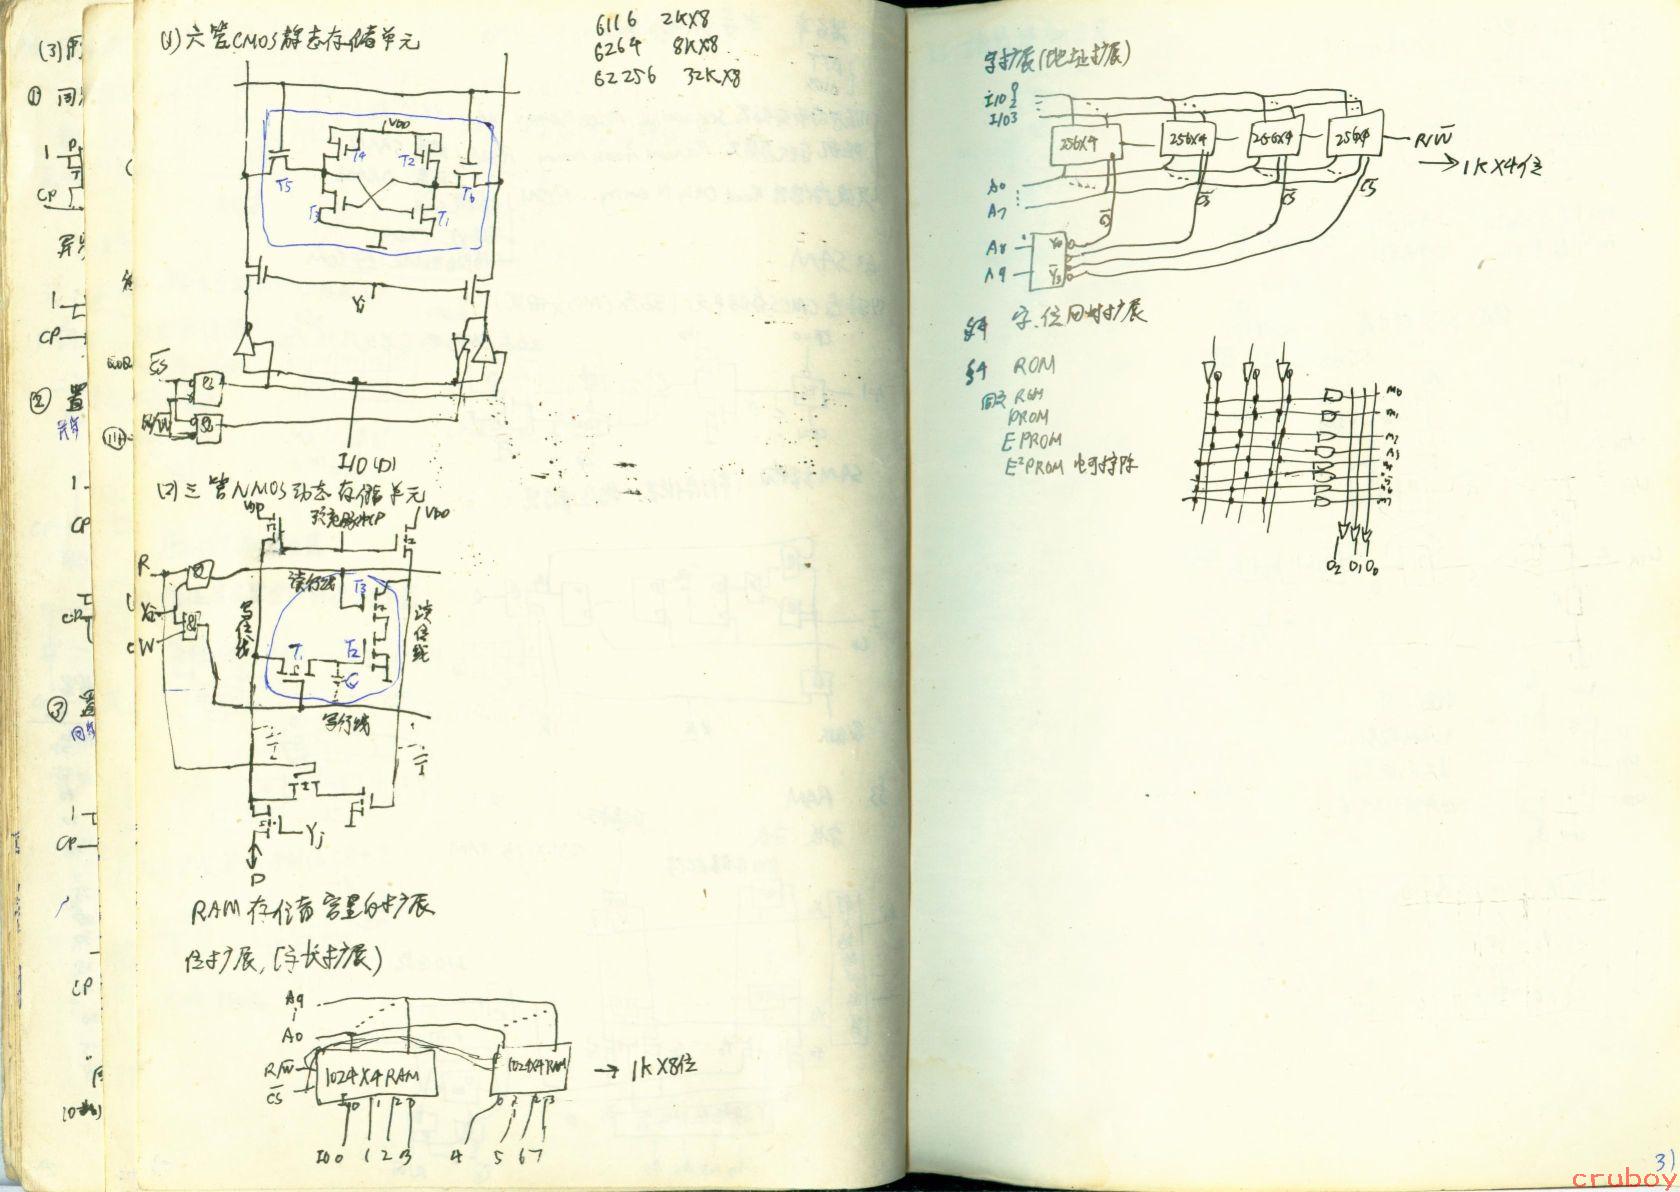 (1) 六管CMOS静态存储单元
6116 2K×8
6264 8K×8
62256 32K×8
VDD
T4 T2
T5 T6
T3 T1
Yj
CS
&
R/W
&
I/O(D)
(2) 三管NMOS动态存储单元
VDD 预充脉冲CP VDD
R &
读行线 T3
Xi
&
W
写位线
读位线
T1 T2
C
写行线
Yj
D
RAM存储容量的扩展
位扩展,(字长扩展)
A9
A0
R/W
CS
1024×4RAM
1024×4RAM
→ 1K×8位
I/O 0 1 2 3 4 5 6 7
字扩展(地址扩展)
I/O3
256×4 256×4 256×4 256×4
R/W
→ 1K×4位
A0
A7
CS CS CS CS
A8 Y0
A9 Y3
字.位同时扩展
§4 ROM
固定ROM
PROM
EPROM
E²PROM 电可擦除
m0
m1
m2
O2 O1 O0
31
cruboy
(3)
① 同
1
CP
异
1
CP
② 置
1
CP
③ 置
1
CP
CP